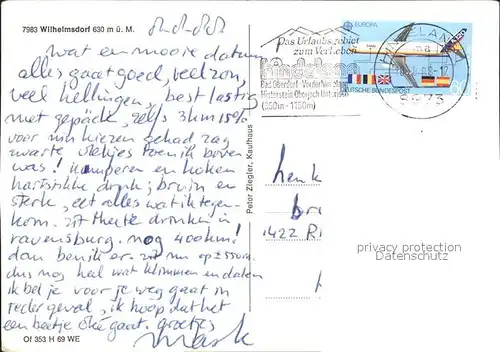 7983 Wilhelmsdorf 630 m ü. M.
Wat en mooie datum
alles gaat goed, veel zon,
veel hellingen, best lastig
met gepäck, zelfs 3km 15%
voor m'n kiezen gehad zag
zwarte vlekjes toen ik boven
was! Kamperen en koken
hartstikke donk; bruin en
sterk, eet alles wat ik tegen-
kom. zit thee te drinken in
ravensburg. nog 400km!
dan ben ik er. zit nu op ± 550m.
dus nog hal wat klimmen en dalen
ik bel je voor je weg gaat in
ieder geval, ik hoop dat het
een beetje oké gaat. groetjes
Mark
Of 353 H 69 WE
Peter Ziegler, Kaufhaus
Das Urlaubsgebiet
zum Verlieben
Hindelang
Bad Oberdorf Vorderhindelang
Hinterstein Oberjoch Unterjoch
(850m - 1150m)
EUROPA
DEUTSCHE BUNDESPOST
60
HINDELANG
8973
henk
br
1422 R
privacy protection
Datenschutz